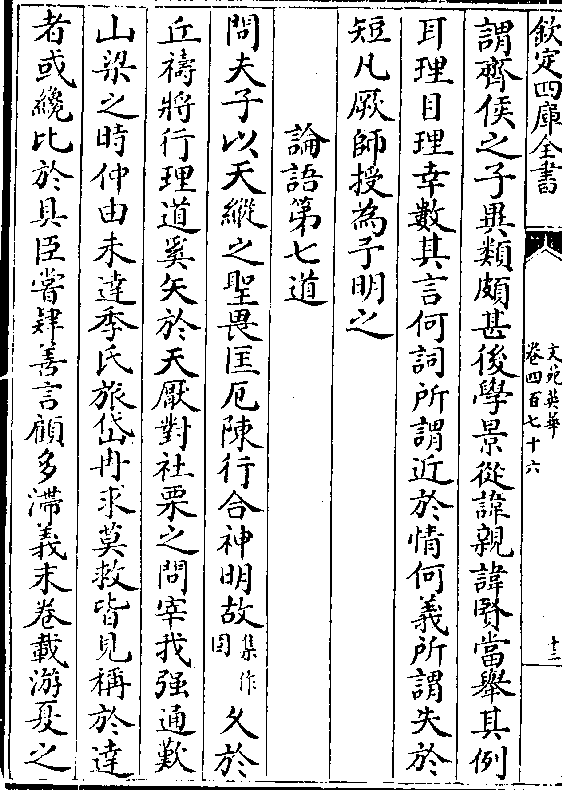 欽定四庫全書
文苑英華
卷四百七十六
十三
謂齊侯之子異類頗甚後學景從諱親諱賢當舉其例
耳理目理幸數其言何詞所謂近於情何義所謂失於
短凡厥師授為予明之
論語第七道
問夫子以天縱之聖畏匡厄陳行合神明故集作固久於
丘禱將行理道奚矢於天厭對社栗之問宰我强通歎
山梁之時仲由未達季氏旅岱冉求莫救皆見稱於達
者或纔比於具臣嘗肄善言顧多滯義末卷載游夏之